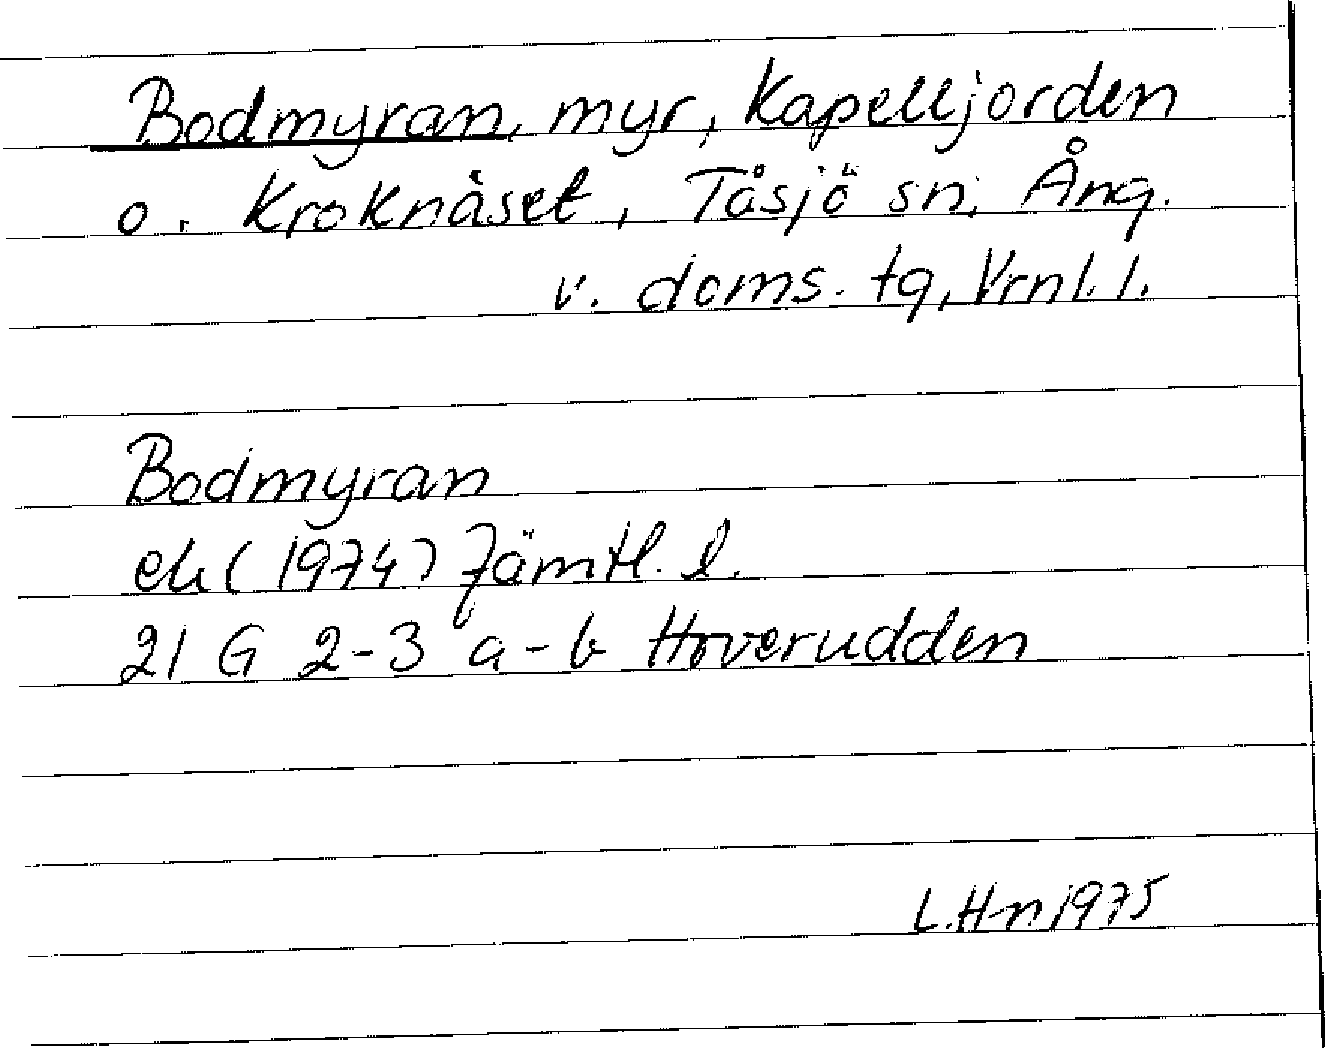 Bodmyran, myr, Kapelljorden
o. Kroknäset, Tåsjö sn, Ång.
v. doms. tg, Vrnl. l.
Bodmyran
ek (1974) Jämtl. l.
21 G 2-3 a-b Hoverudden
L.H-n 1975